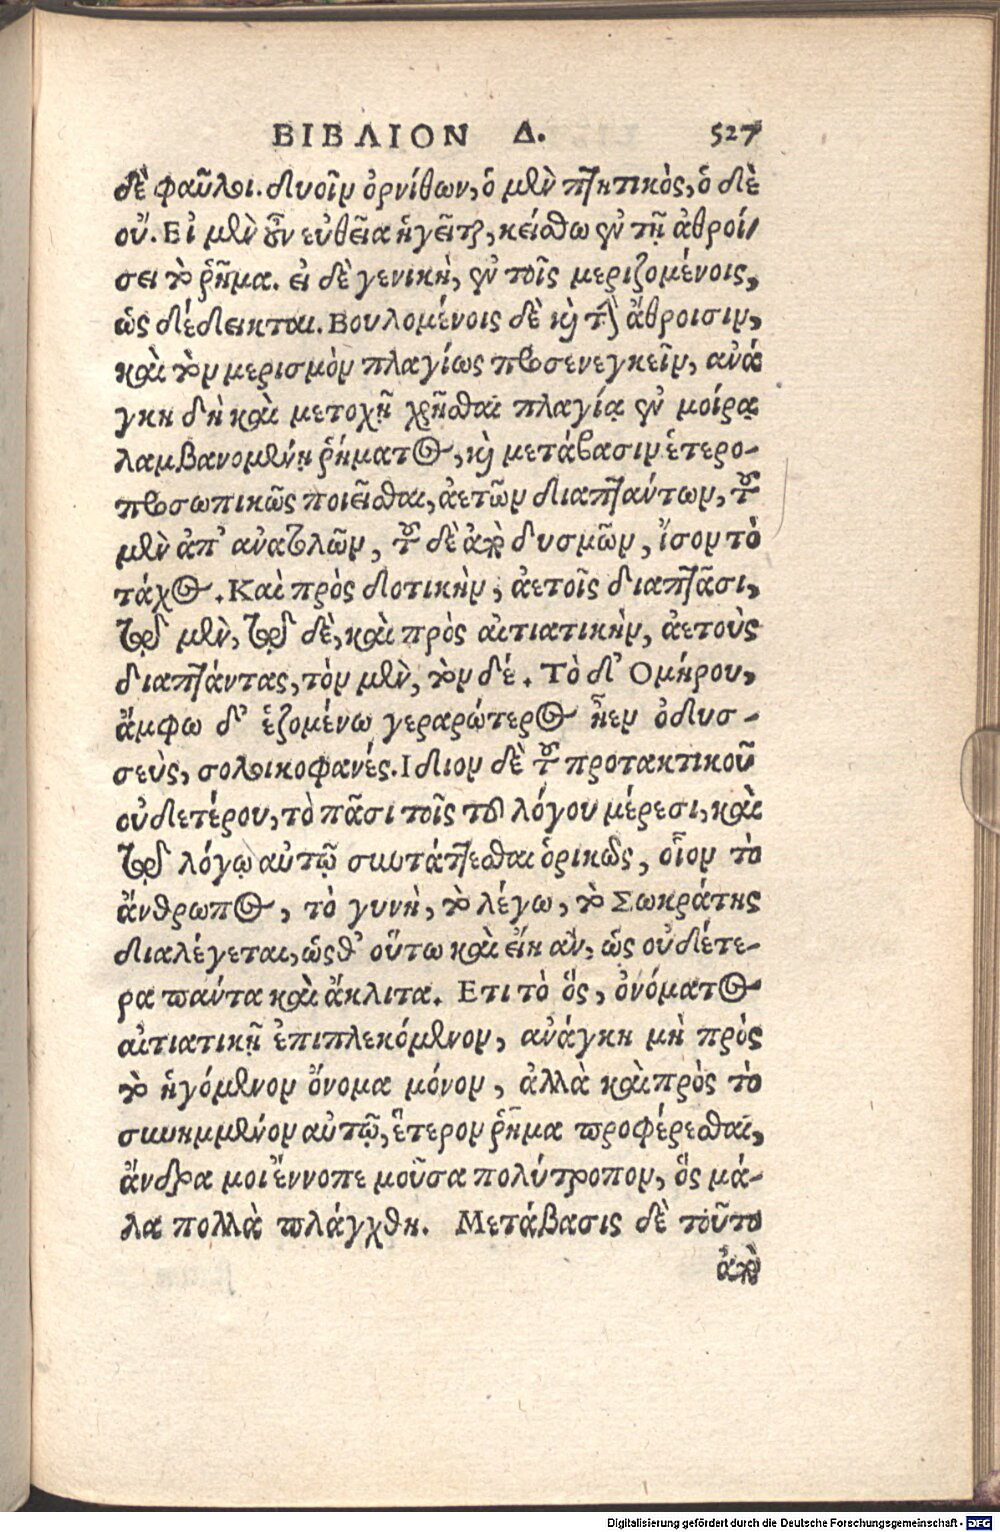 ΒΙΒΛΙΟΝ Δ. 527
δὲ φαῦλοι. δυοῖν ὀρνίθων, ὁ μὲν πτητικὸς, ὁ δὲ
οὔ. Εἰ μὲν οὖν εὐθεῖα ἡγεῖται, κείσθω ἐν τῇ ἀθροί-
σει τὸ ῥῆμα. εἰ δὲ γενικὴ, ἐν τοῖς μεριζομένοις,
ὡς δέδεικται. Βουλομένοις δὲ καὶ τὴν ἄθροισιν,
καὶ τὸν μερισμὸν πλαγίως προσενεγκεῖν, ἀνά
γκη δὴ καὶ μετοχῇ χρῆσθαι πλαγίᾳ ἐν μοίρᾳ
λαμβανομένῃ ῥήματος, καὶ μετάβασιν ἑτερο-
προσωπικῶς ποιεῖσθαι, ἀετῶν διαπτάντων, τοῦ
μὲν ἀπ' ἀνατολῶν, τοῦ δὲ ἀπὸ δυσμῶν, ἴσον τὸ
τάχος. Καὶ πρὸς δοτικὴν, ἀετοῖς διαπτᾶσι,
τῷ μὲν, τῷ δὲ, καὶ πρὸς αἰτιατικὴν, ἀετοὺς
διαπτάντας, τὸν μὲν, τὸν δέ. Τὸ δ' Ομήρου,
ἄμφω δ' ἑζομένω γεραρώτερος ἦεν ὀδυσ-
σεὺς, σολοικοφανές. Ιδιον δὲ τοῦ προτακτικοῦ
οὐδετέρου, τὸ πᾶσι τοῖς τοῦ λόγου μέρεσι, καὶ
τῷ λόγῳ αὐτῷ συντάττεσθαι ὁρικῶς, οἷον τὸ
ἄνθρωπος, τὸ γυνὴ, τὸ λέγω, τὸ Σωκράτης
διαλέγεται, ὥςθ' οὕτω καὶ εἴη ἂν, ὡς οὐδέτε-
ρα πάντα καὶ ἄκλιτα. Ετι τὸ ὃς, ὀνόματος
αἰτιατικῇ ἐπιπλεκόμενον, ἀνάγκη μὴ πρὸς
τὸ ἡγόμενον ὄνομα μόνον, ἀλλὰ καὶ πρὸς τὸ
συνημμένον αὐτῷ, ἕτερον ῥῆμα προφέρεσθαι,
ἄνδρα μοι ἔννοπε μοῦσα πολύτροπον, ὃς μά-
λα πολλὰ πλάγχθη. Μετάβασις δὲ τοῦτο
ἀπὸ
Digitalisierung gefördert durch die Deutsche Forschungsgemeinschaft - DFG